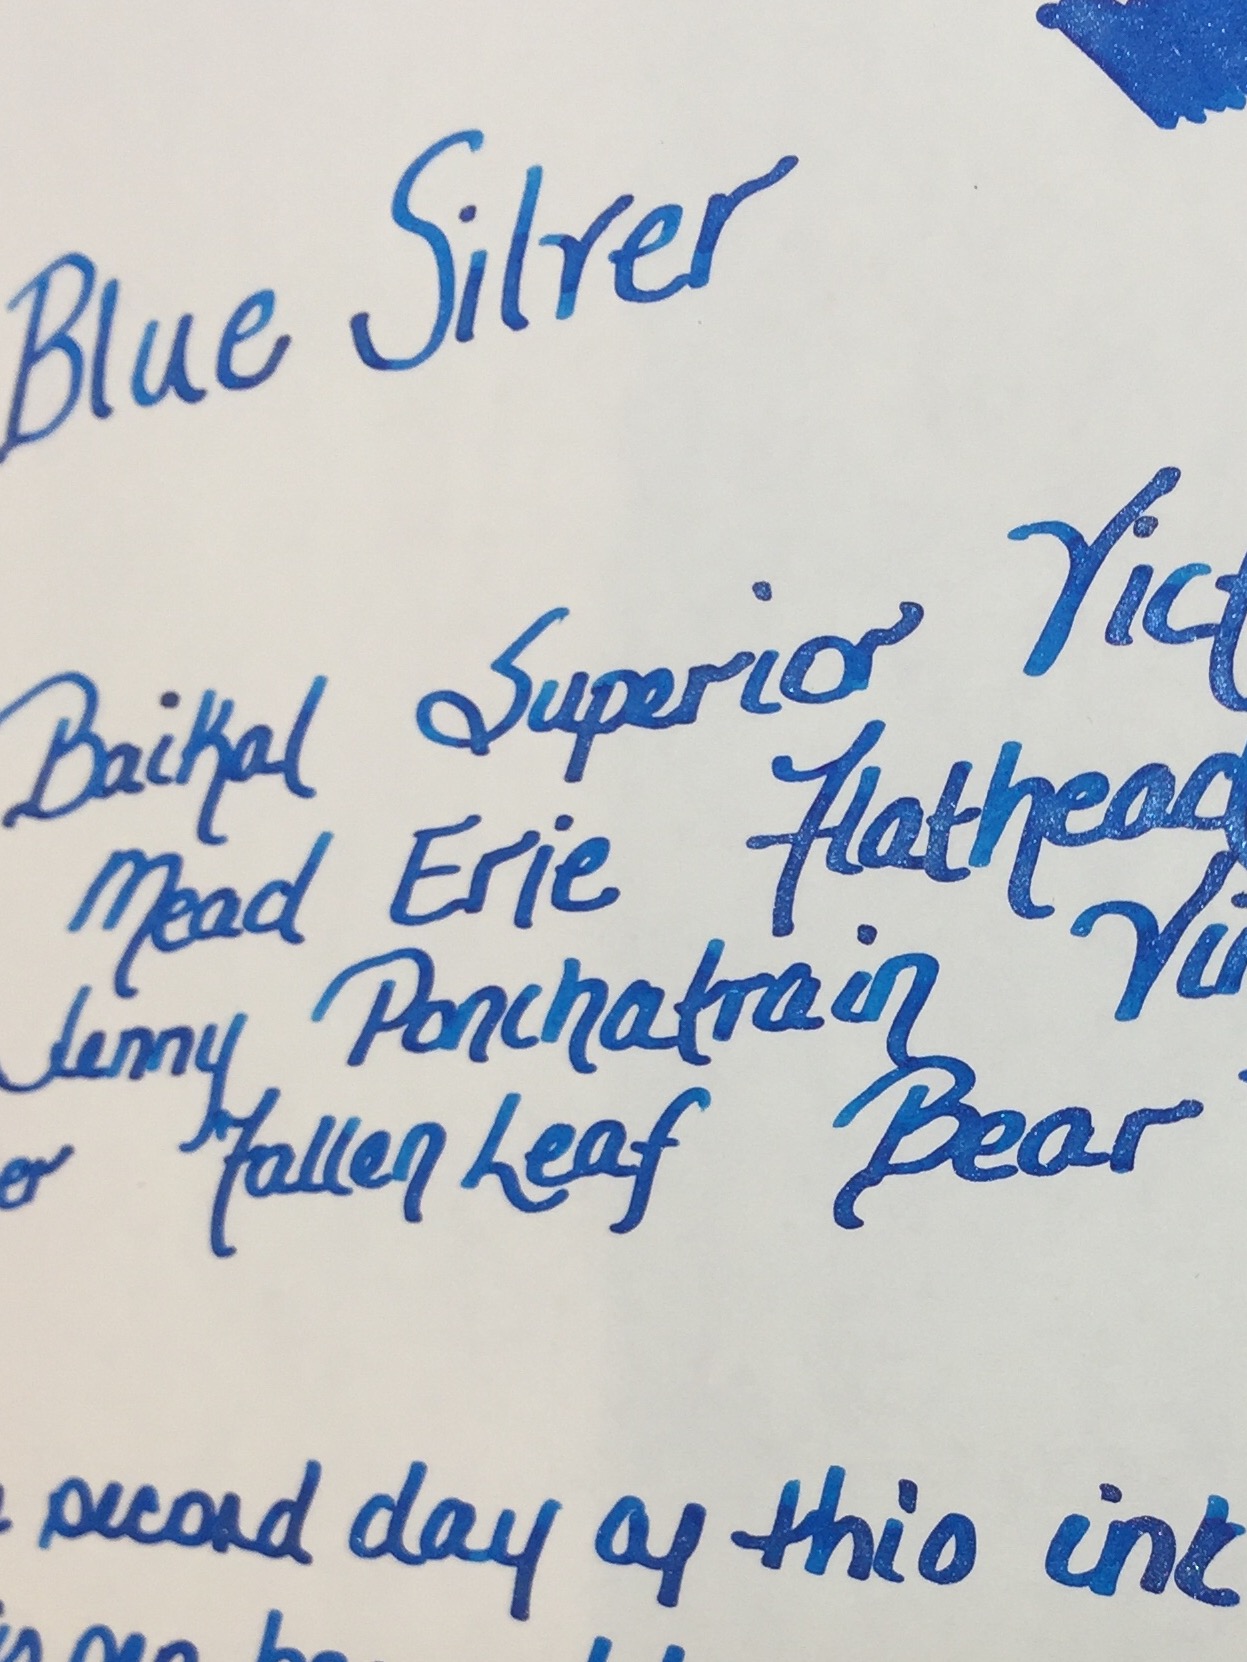 Blue Silver
Baikal Superior Vict
Mead Erie Flathead
Jenny Ponchatrain Vir
er Fallen Leaf Bear
second day of this ink